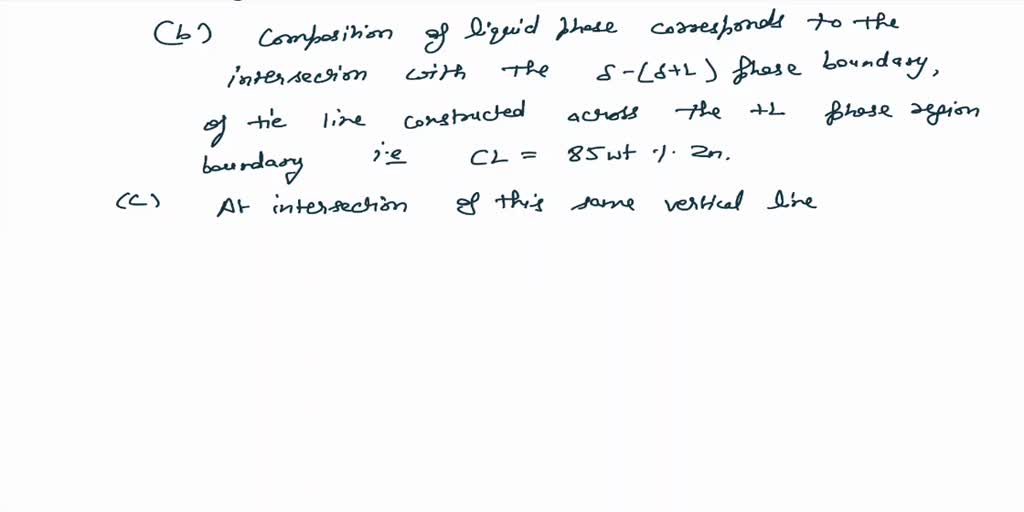 (b) Composition of liquid phase corresponds to the
intersection with the δ-(δ+L) phase boundary,
of tie line constructed across the +L phase region
boundary i.e CL = 85wt %. Zn.
(c) At intersection of this same vertical line